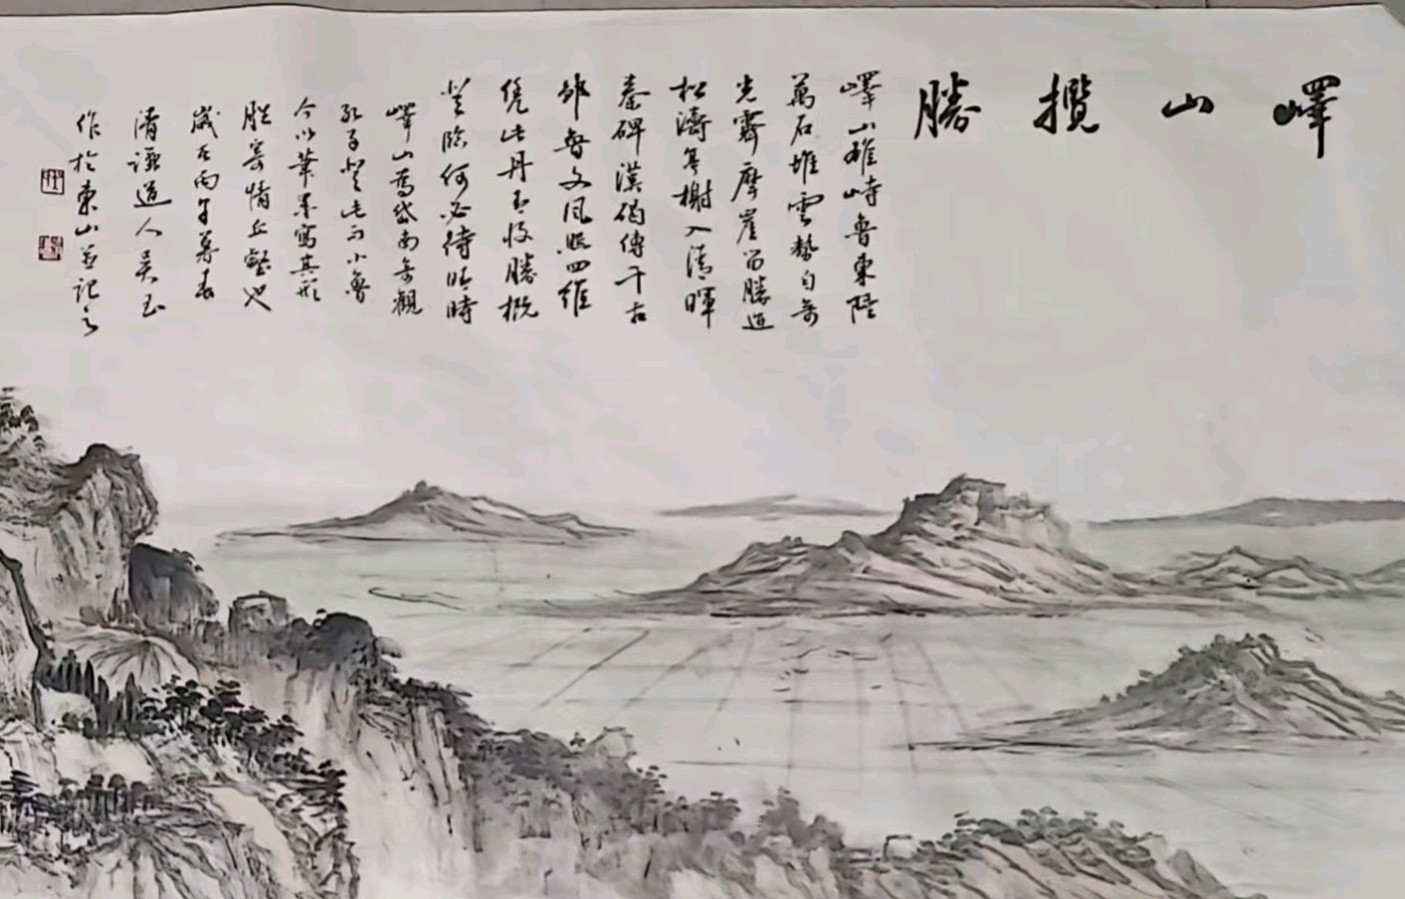 嶧山攬勝
嶧山雄峙魯東陲
萬石堆雲勢自奇
光霽摩崖留勝迹
松濤榭入清暉
秦碑漢碣傳千古
邾魯文風四維
憑此丹青收勝概
登臨何必待時
嶧山為岱南奇觀
孔子登此而小魯
今以筆墨寫其形
勝寄情丘壑也
歲在丙午暮春
清謙道人吳玉
作於東山並記之